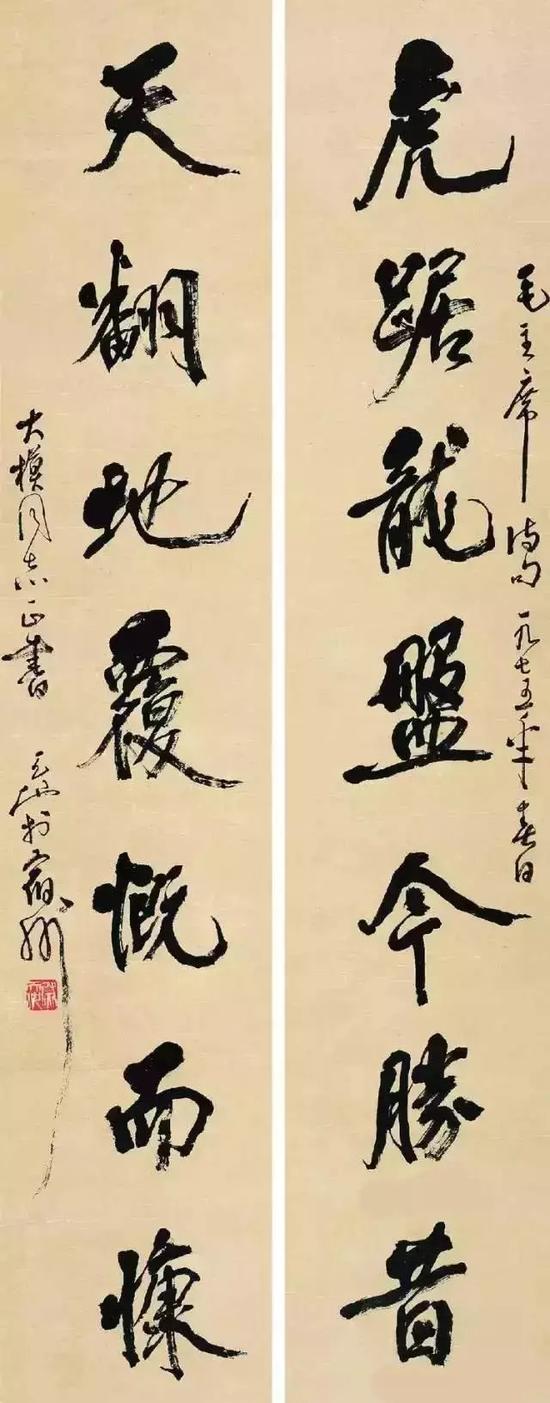 虎踞龍盤今勝昔
毛主席诗句 一九七五年春日
天翻地覆慨而慷
大模同志正書 天池於宿州